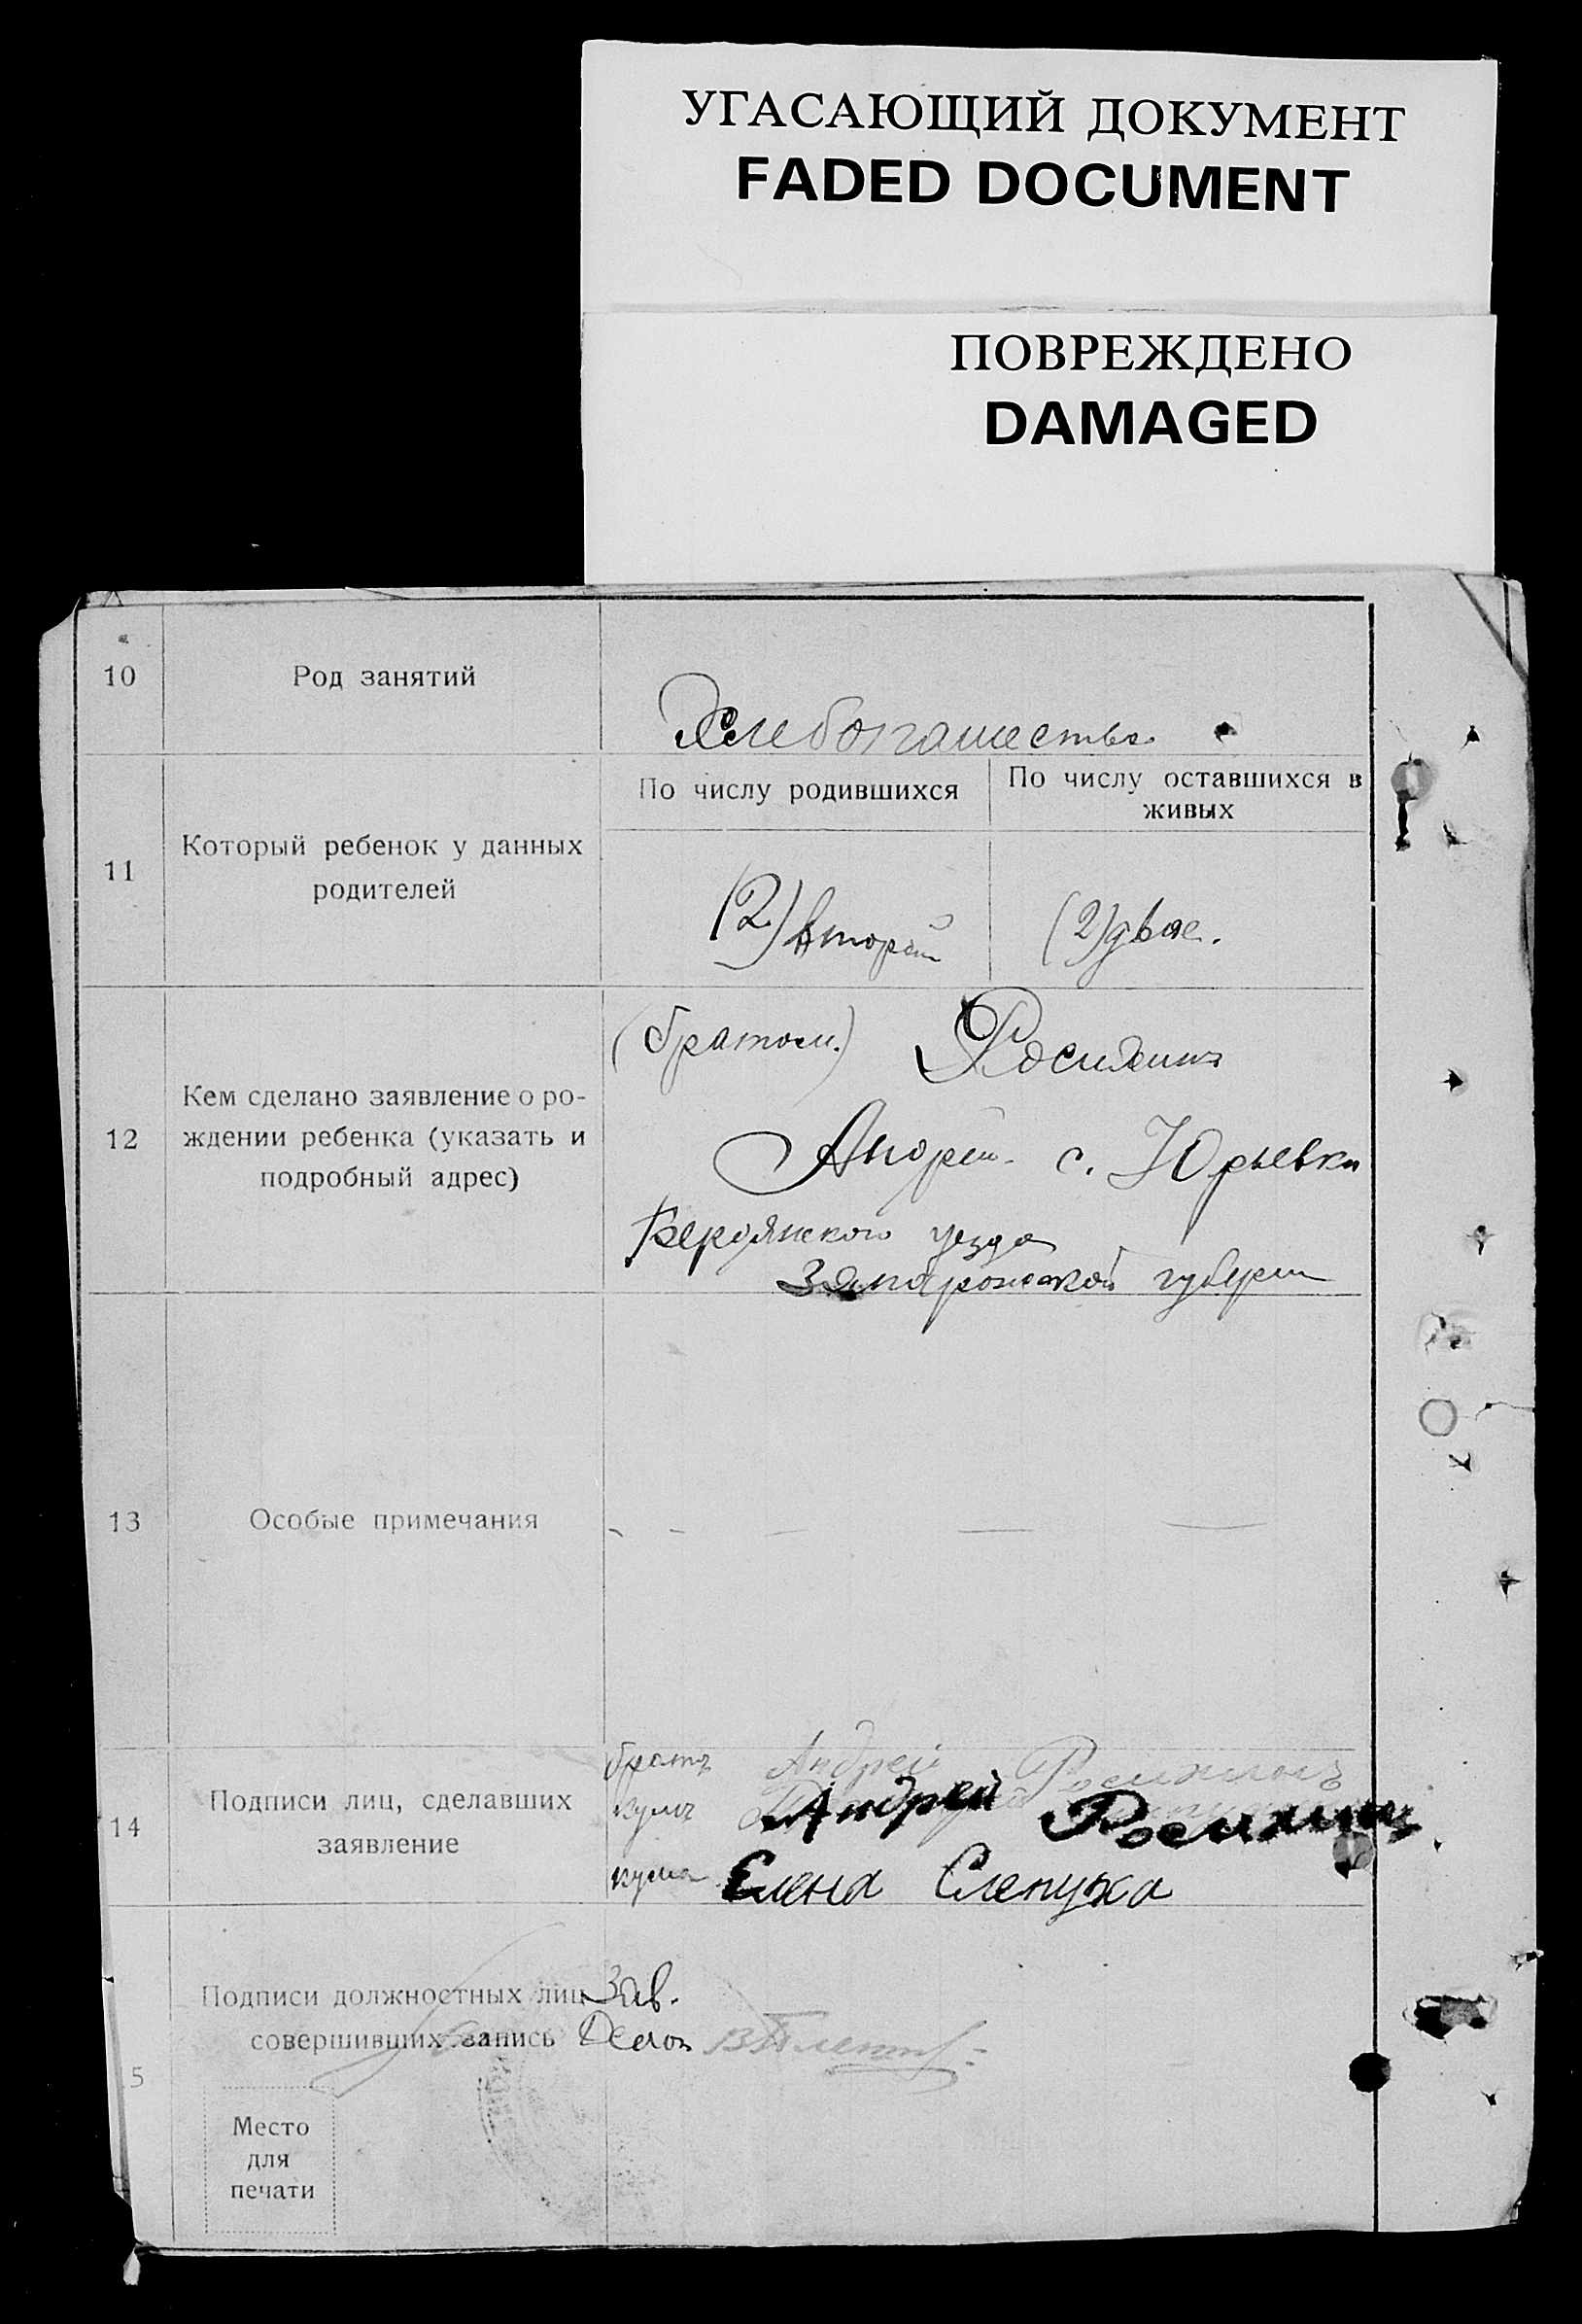 УГАСАЮЩИЙ ДОКУМЕНТ
FADED DOCUMENT
ПОВРЕЖДЕНО
DAMAGED
10
Род занятий
Хлебопашество
11
Который ребенок у данных
родителей
По числу родившихся
По числу оставшихся в
живых
(2) второй
(2) двое.
12
Кем сделано заявление о ро-
ждении ребенка (указать и
подробный адрес)
(братом)
Андрей с. Юрьевки
Бердянского уезда
Запорожской губерни
13
Особые примечания
14
Подписи лиц, сделавших
заявление
братъ Андрей
кумъ
Андрей
кума Елена Слепуха
5
Подписи должностных лиц
совершивших запись
Зав.
Место
для
печати